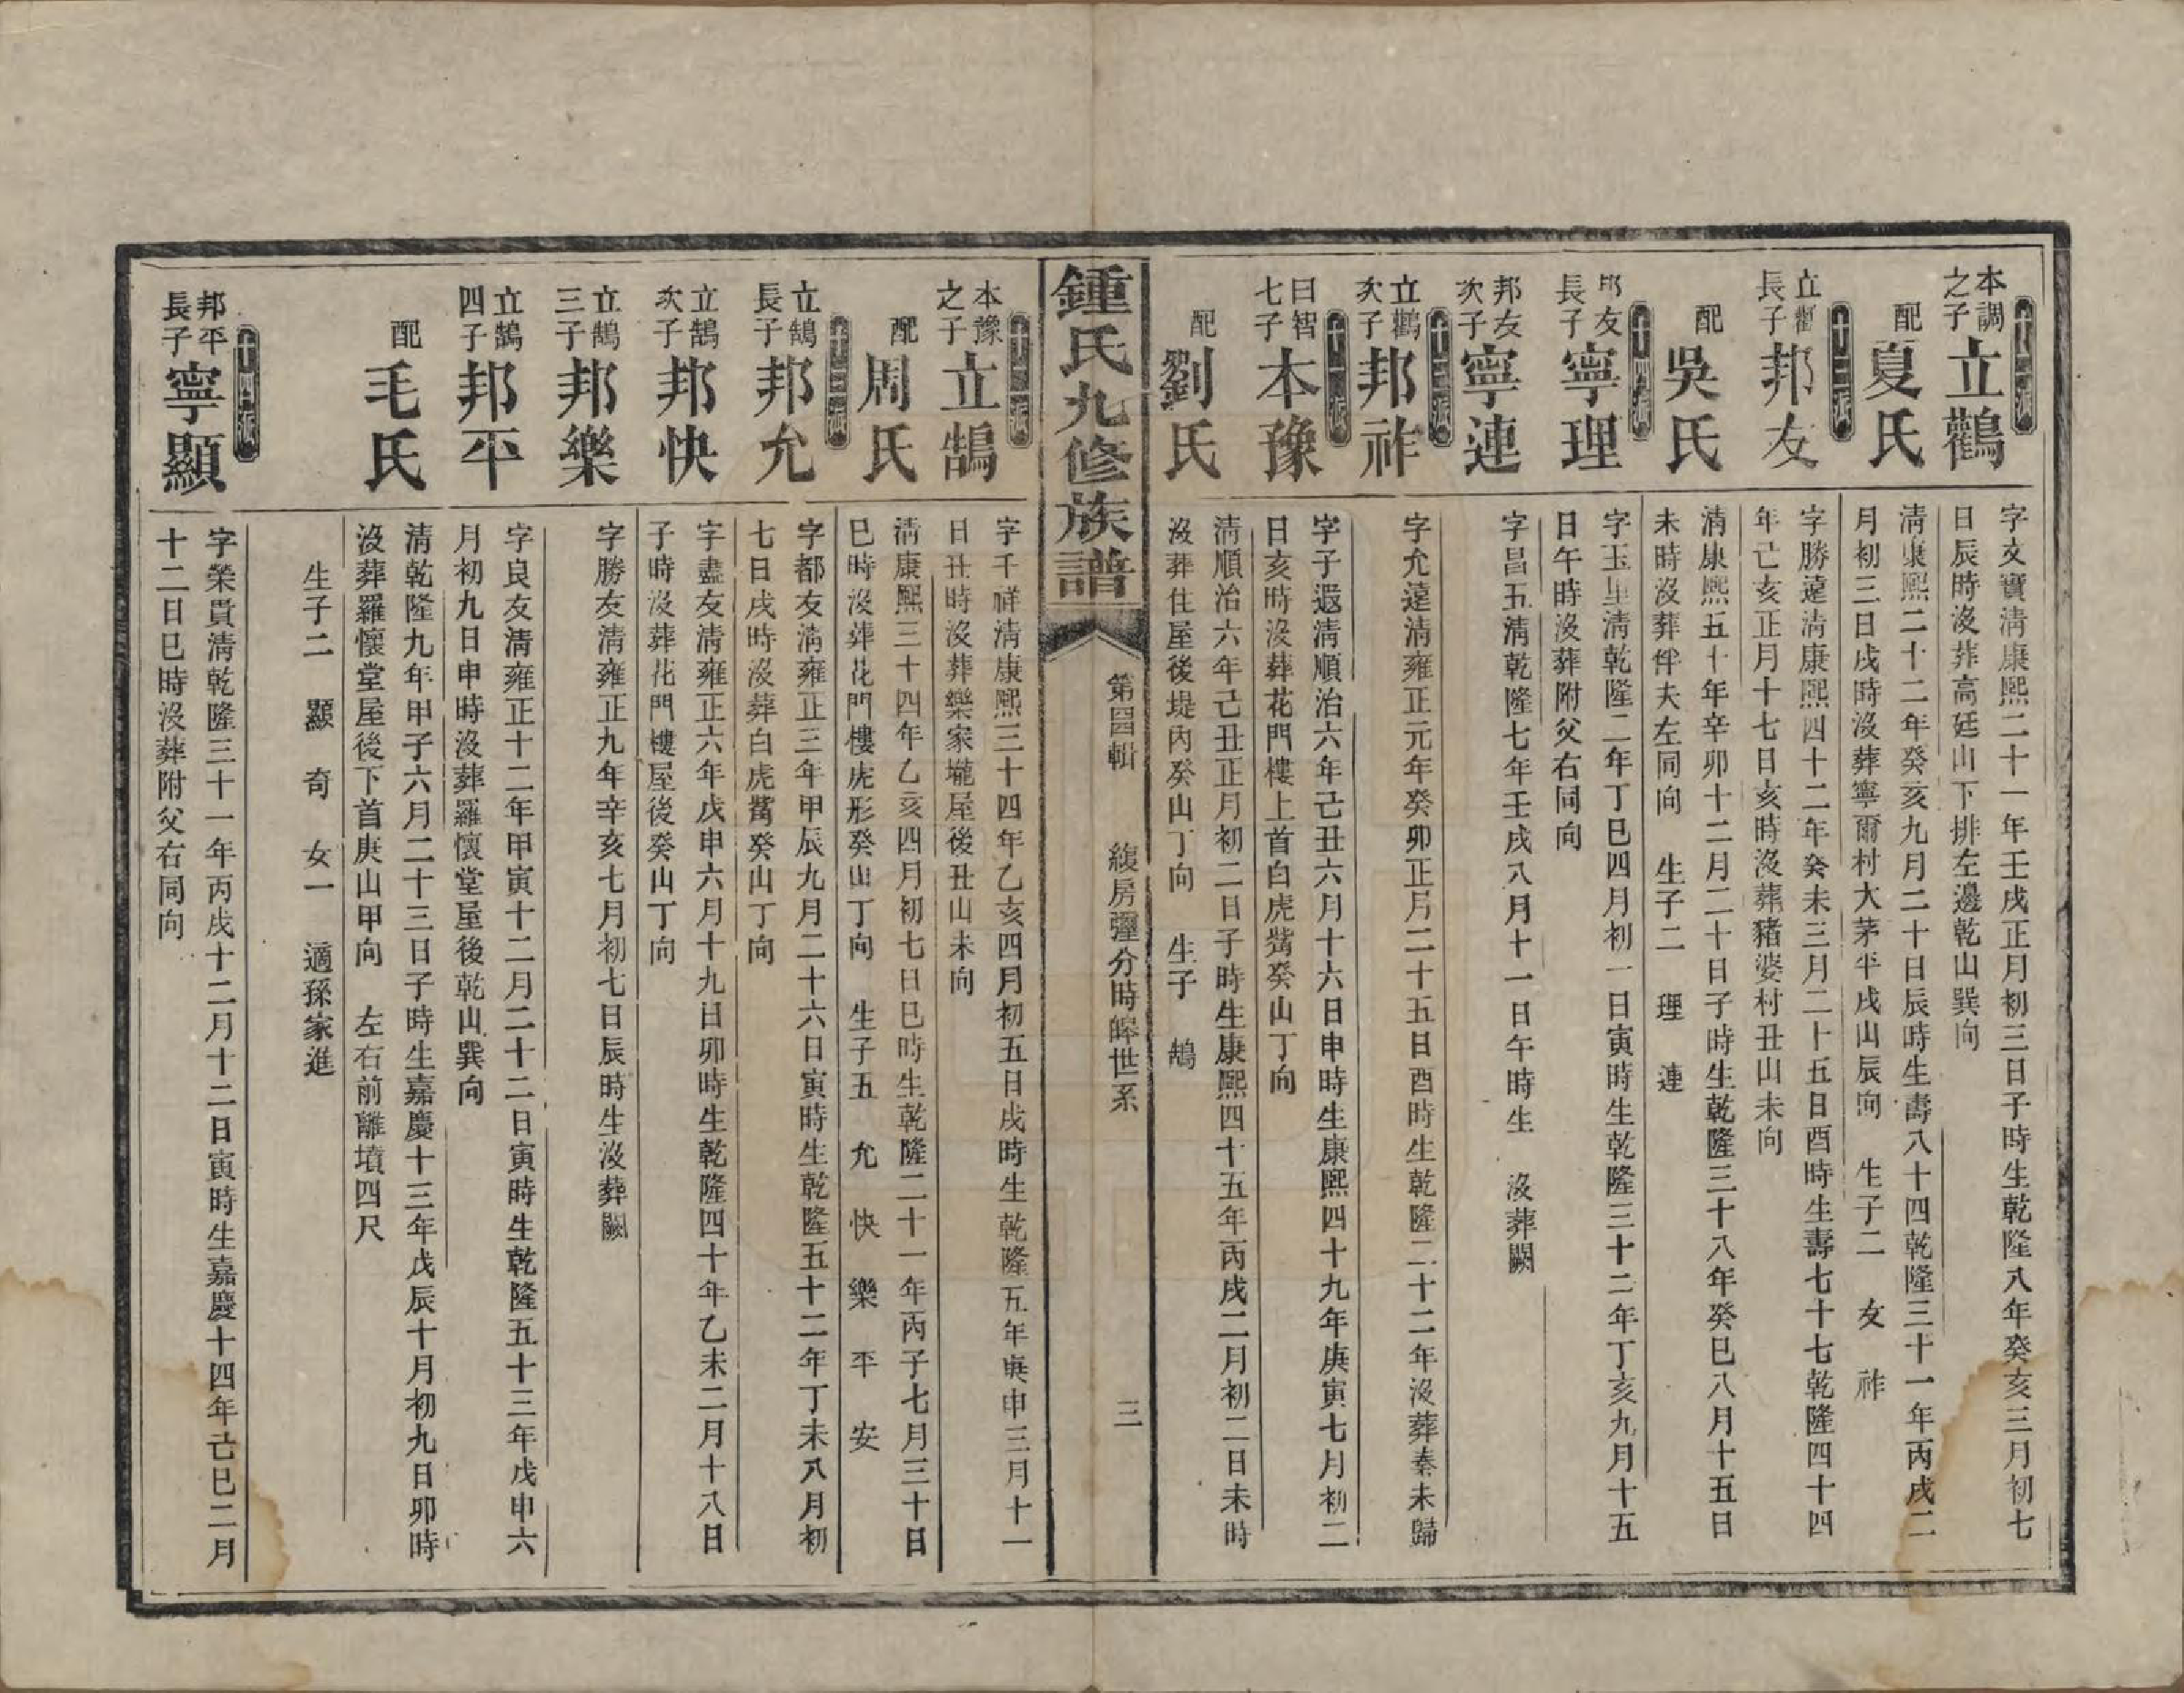 十二派
本調之子
立鸛
字文寶清康熙二十一年壬戌正月初三日子時生乾隆八年癸亥三月初七
日辰時沒葬高廷山下排左邊乾山巽向
配
夏氏
清康熙二十二年癸亥九月二十日辰時生壽八十四乾隆三十一年丙戌二
月初三日戌時沒葬寧爾村大茅平戌山辰向　生子二　友　祚
十三派
立鸛長子
邦友
字勝遠清康熙四十二年癸未三月二十五日酉時生壽七十七乾隆四十四
年己亥正月十七日亥時沒葬豬婆村丑山未向
配
吳氏
清康熙五十年辛卯十二月二十日子時生乾隆三十八年癸巳八月十五日
未時沒葬伴夫左同向　生子二　理　連
十四派
邦友長子
寧理
字玉里清乾隆二年丁巳四月初一日寅時生乾隆三十二年丁亥九月十五
日午時沒葬附父右同向
邦友次子
寧連
字昌五清乾隆七年壬戌八月十一日午時生　沒葬闕
十三派
立鸛次子
邦祚
字允遠清雍正元年癸卯正月二十五日酉時生乾隆二十二年沒葬秦未歸
十一派
日智七子
本豫
字子遐清順治六年己丑六月十六日申時生康熙四十九年庚寅七月初二
日亥時沒葬花門樓上首白虎觜癸山丁向
配
劉氏
清順治六年己丑正月初二日子時生康熙四十五年丙戌二月初二日未時
沒葬住屋後堤內癸山丁向　生子　鵠
鍾氏九修族譜
第四輯　緮房彌分時皞世系
三
十二派
本豫之子
立鵠
字千祥清康熙三十四年乙亥四月初五日戌時生乾隆五年庚申三月十一
日丑時沒葬樂家壠屋後丑山未向
配
周氏
清康熙三十四年乙亥四月初七日巳時生乾隆二十一年丙子七月三十日
巳時沒葬花門樓虎形癸山丁向　生子五　允　快　樂　平　安
十三派
立鵠長子
邦允
字都友清雍正三年甲辰九月二十六日寅時生乾隆五十二年丁未八月初
七日戌時沒葬白虎觜癸山丁向
立鵠次子
邦快
字盡友清雍正六年戊申六月十九日卯時生乾隆四十年乙未二月十八日
子時沒葬花門樓屋後癸山丁向
立鵠三子
邦樂
字勝友清雍正九年辛亥七月初七日辰時生沒葬闕
立鵠四子
邦平
字良友清雍正十二年甲寅十二月二十二日寅時生乾隆五十三年戊申六
月初九日申時沒葬羅懷堂屋後乾山巽向
配
毛氏
清乾隆九年甲子六月二十三日子時生嘉慶十三年戊辰十月初九日卯時
沒葬羅懷堂屋後下首庚山甲向　左右前離墳四尺
生子二　顯　奇　女一　適孫家進
十四派
邦平長子
寧顯
字榮貫清乾隆三十一年丙戌十二月十二日寅時生嘉慶十四年己巳二月
十二日巳時沒葬附父右同向